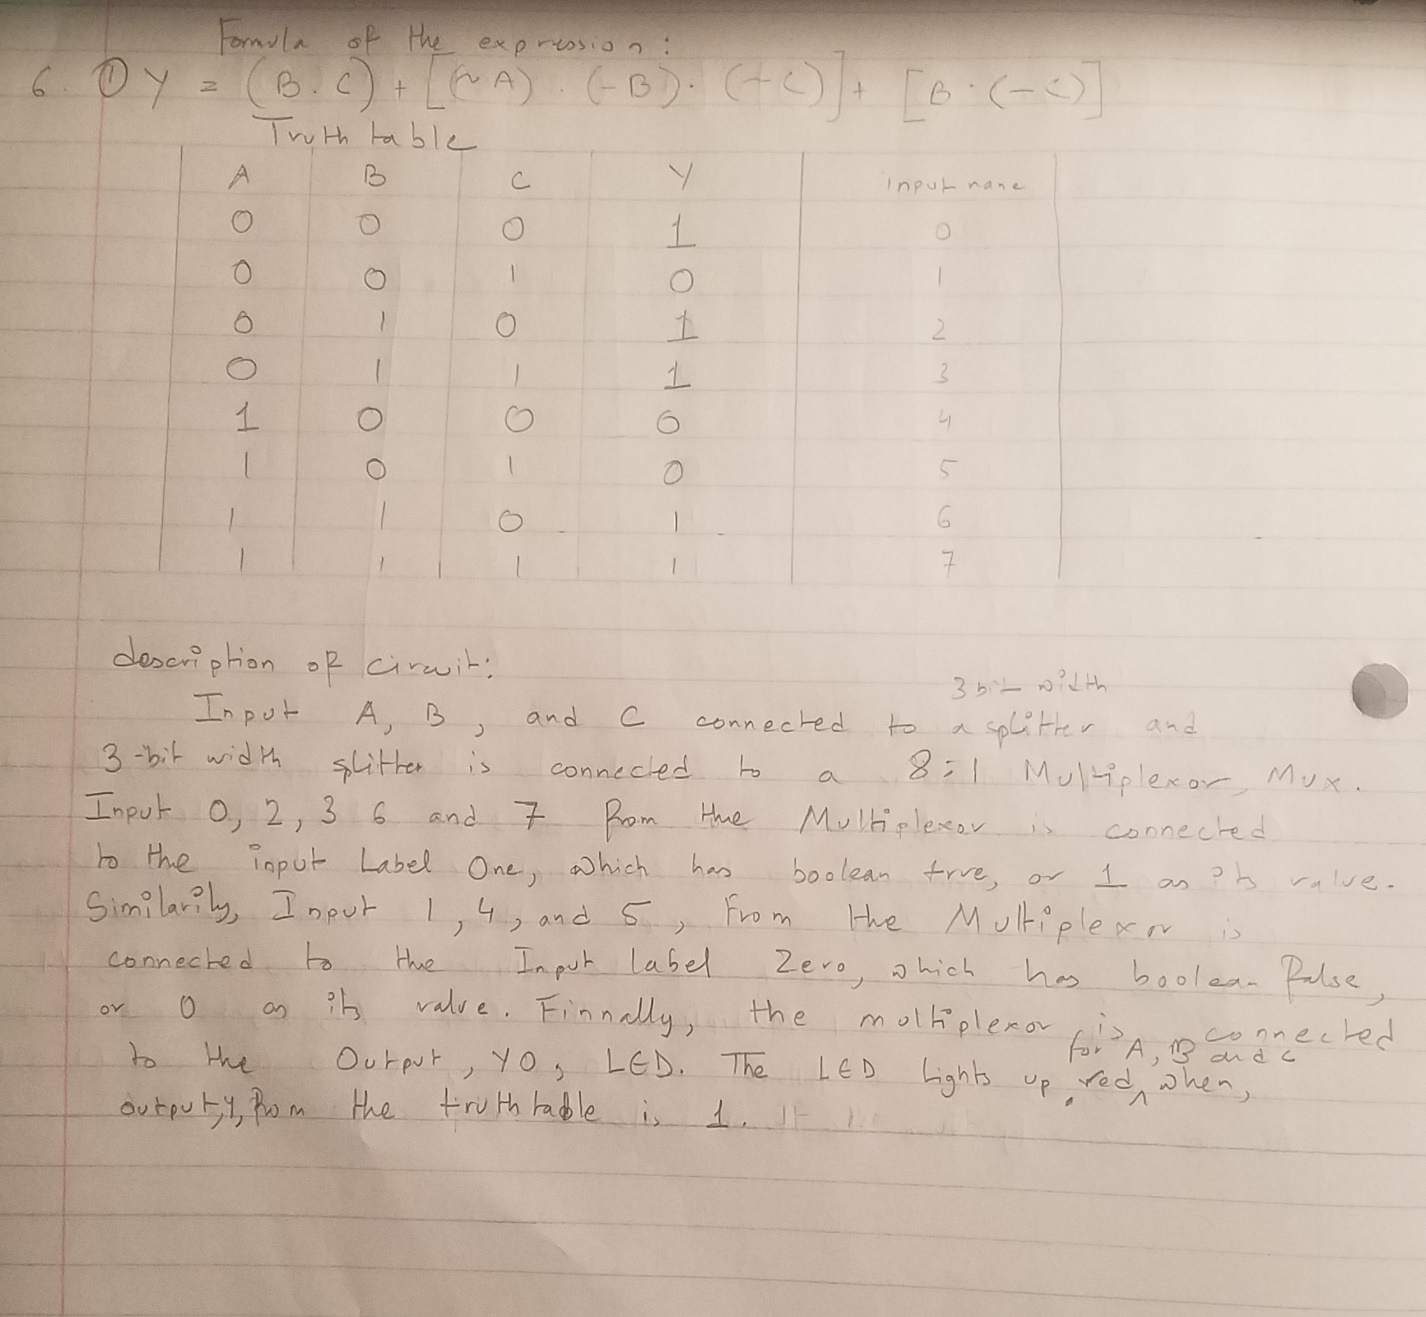 Formula of the expression:
6. ① Y = (B.C) + [(~A) . (-B). (-C)] + [B.(-C)]
Truth table
A B C Y input name
0 0 0 1 0
0 0 1 0 1
0 1 0 1 2
0 1 1 1 3
1 0 0 0 4
1 0 1 0 5
1 1 0 1 6
1 1 1 1 7
description of circuit:
3 bit width
Input A, B, and C connected to a splitter and
3-bit width splitter is connected to a 8:1 Multiplexor, Mux.
Input 0, 2, 3 6 and 7 from the Multiplexor is connected
to the input Label One, which has boolean true, or 1 as its value.
Similarily, Input 1, 4, and 5, from the Multiplexor is
connected to the Input label Zero, which has boolean false,
or 0 as its value. Finnally, the moltiplexor is connected
for A, B and C
to the Output, Y0, LED. The LED lights up red, when,
output, Y, from the truth table is 1.